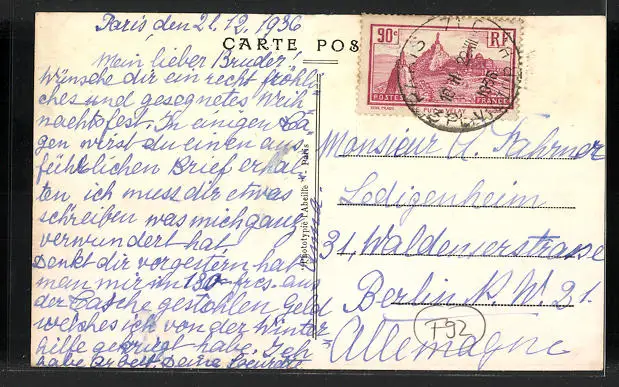 Paris, den 21.12.1936
CARTE POS
Mein lieber Bruder!
Wünsche dir ein recht fröhli
ches und gesegnetes Weih
nachtsfest. In einigen Ta
gen wirst du einen aus
führlichen Brief erhal
ten ich muss dir etwas
schreiben was mich ganz
verwundert hat
Denkt dir vorgestern hat
man mir um 130 frcs. aus
der Tasche gestohlen Geld
welches ich von der Winter
hilfe gekriegt habe. Ich
habe Arbeit. Deine
Phototypie l'Abeille - Paris
90c
RF
POSTES
FRANCE
LE PUY-EN-VELAY
PARIS
1936
Monsieur A. Fahrner
Ledigenheim
31, Waldenserstrasse
Berlin N.W. 21.
Allemagne
T92